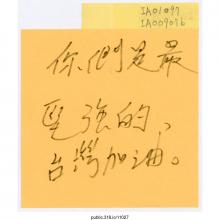 IA01097
IA009076
你們是最
堅強的、
台灣加油。
public.318.io/11027